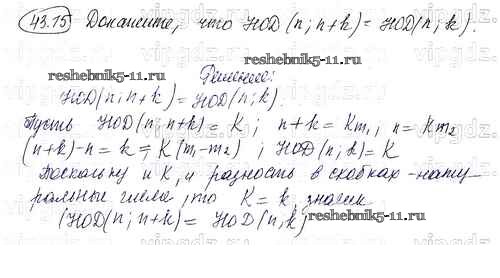 43.15 Докажите, что НОД (n; n+k) = НОД(n; k).
reshebnik5-11.ru
Решение:
reshebnik5-11.ru
НОД(n; n+k) = НОД(n; k).
Пусть НОД(n; n+k) = K; n+k = Km₁, n = Km₂
(n+k)-n = k = K(m₁-m₂) ; НОД(n; k) = K
Поскольку и K, и разность в скобках - нату
ральные числа, то K = k, значит
НОД(n; n+k) = НОД(n; k)
reshebnik5-11.ru